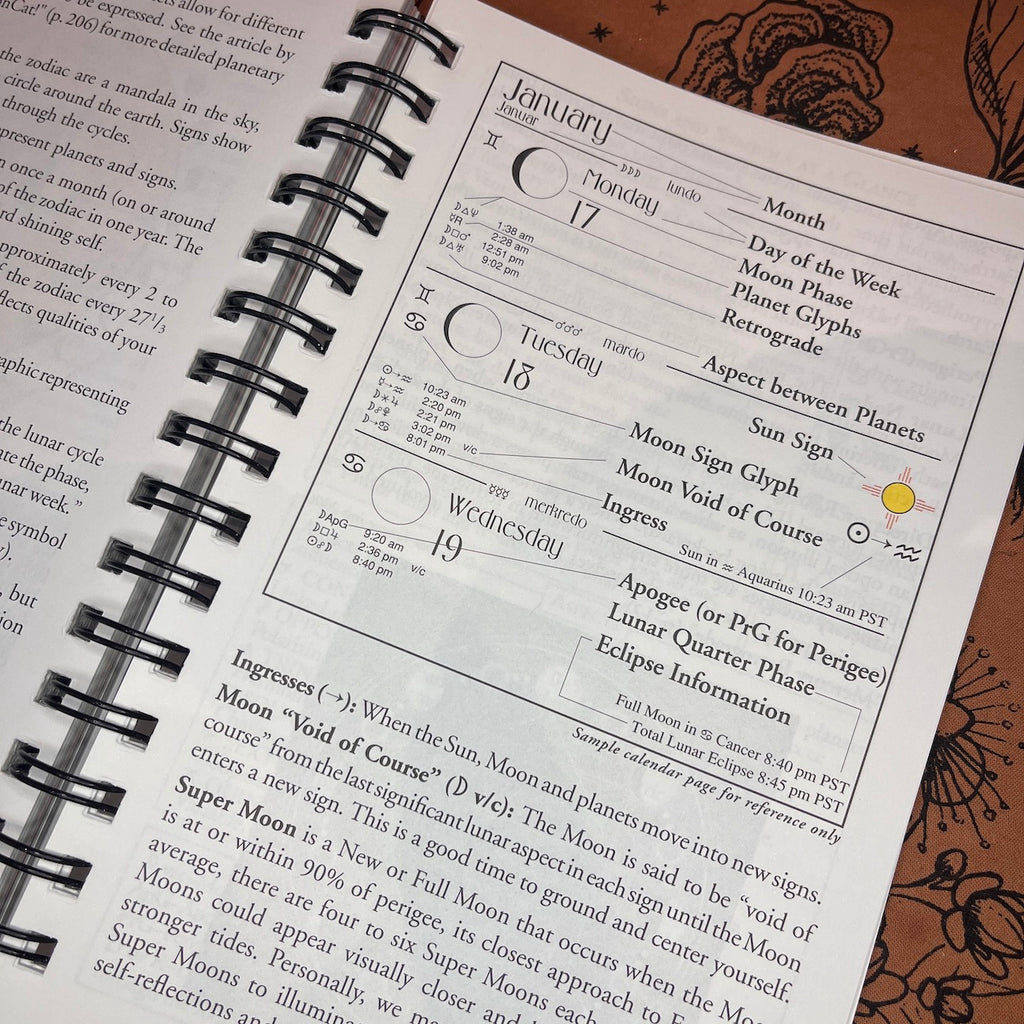 ets allow for different
y be expressed. See the article by
nCat!" (p. 206) for more detailed planetary
the zodiac are a mandala in the sky,
circle around the earth. Signs show
through the cycles.
present planets and signs.
n once a month (on or around
of the zodiac in one year. The
rd shining self.
pproximately every 2 to
f the zodiac every 27⅓
flects qualities of your
aphic representing
the lunar cycle
ate the phase,
unar week."
e symbol
, but
ion
January
Januar
Month
♊ Monday ☽☽☽ lundo
17
Day of the Week
Moon Phase
Planet Glyphs
Retrograde
☽△♆ 1:38 am
☿℞ 2:28 am
☽□♂ 12:51 pm
☽△♅ 9:02 pm
♊
♋ Tuesday ♂♂♂ mardo
18
Aspect between Planets
Sun Sign
☉→♒ 10:23 am
☿→♒ 2:20 pm
☽⚹♃ 2:21 pm
☽☍♀ 3:02 pm v/c
☽→♋ 8:01 pm
Moon Sign Glyph
Moon Void of Course
Ingress
☉→♒
Sun in ♒ Aquarius 10:23 am PST
♋ Wednesday ☿☿☿ merkredo
19
☽ApG 9:20 am
☽□♃ 2:36 pm v/c
☉☍☽ 8:40 pm
Apogee (or PrG for Perigee)
Lunar Quarter Phase
Eclipse Information
Full Moon in ♋ Cancer 8:40 pm PST
Total Lunar Eclipse 8:45 pm PST
Sample calendar page for reference only
Ingresses (→): When the Sun, Moon and planets move into new signs.
Moon "Void of Course" (☽ v/c): The Moon is said to be "void of
course" from the last significant lunar aspect in each sign until the Moon
enters a new sign. This is a good time to ground and center yourself.
Super Moon is a New or Full Moon that occurs when the Moo
is at or within 90% of perigee, its closest approach to E
average, there are four to six Super Moons each
Moons could appear visually closer and
stronger tides. Personally, we ma
Super Moons to illumina
self-reflections and